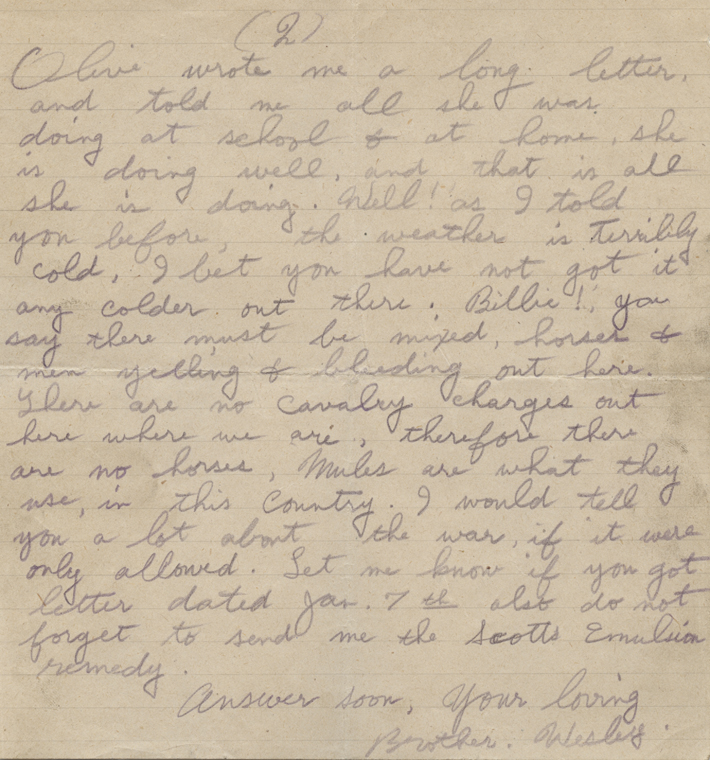 (2)
Olive wrote me a long letter,
and told me all she was
doing at school & at home, she
is doing well, and that is all
she is doing. Well! as I told
you before, the weather is terribly
cold, I bet you have not got it
any colder out there. Billie!, you
say there must be mixed, horses &
men yelling & bleeding out here.
There are no cavalry charges out
here where we are, therefore there
are no horses, Mules are what they
use, in this country. I would tell
you a lot about the war, if it were
only allowed. Let me know if you got
letter dated Jan. 7th also do not
forget to send me the Scotts Emulsion
remedy.
Answer soon, Your loving
Brother. Wesley.